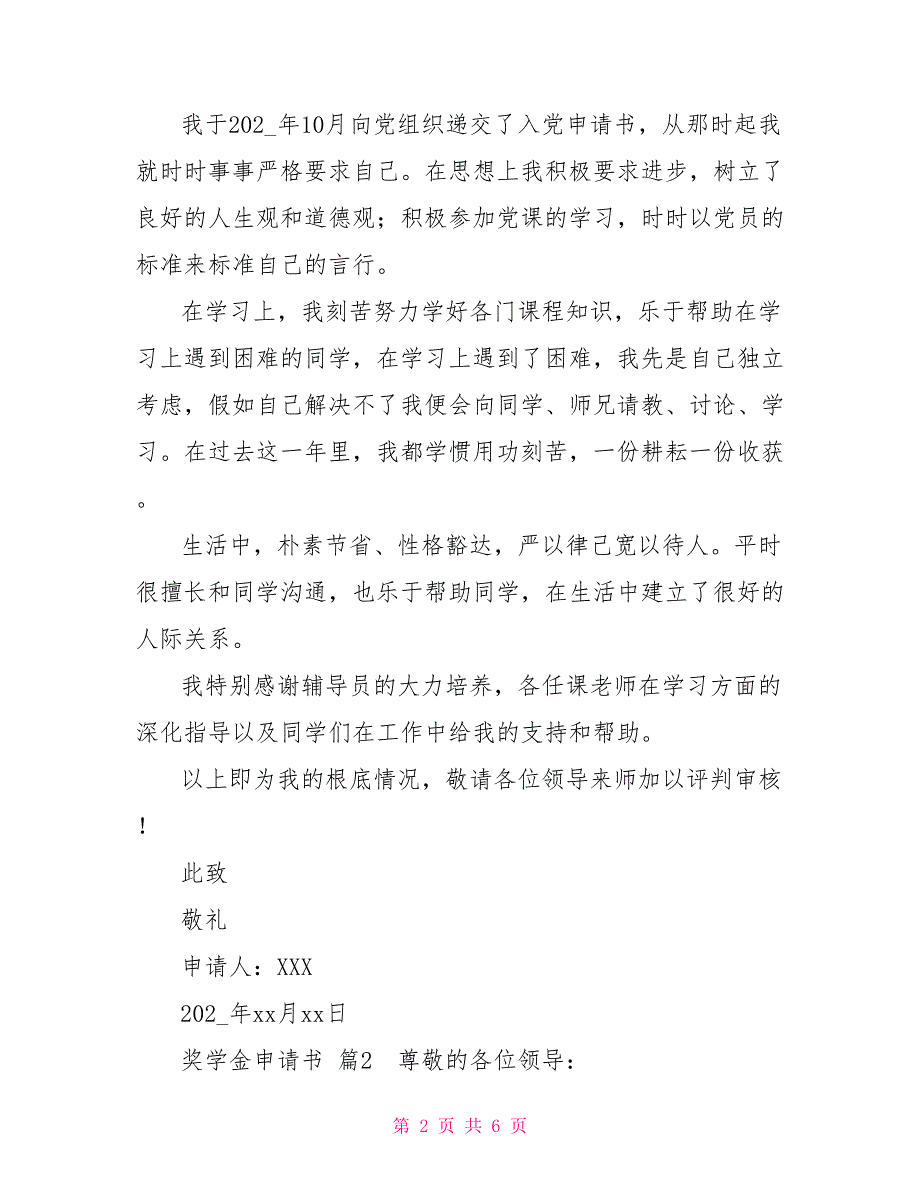 我于202_年10月向党组织递交了入党申请书，从那时起我
就时时事事严格要求自己。在思想上我积极要求进步，树立了
良好的人生观和道德观；积极参加党课的学习，时时以党员的
标准来标准自己的言行。
在学习上，我刻苦努力学好各门课程知识，乐于帮助在学
习上遇到困难的同学，在学习上遇到了困难，我先是自己独立
考虑，假如自己解决不了我便会向同学、师兄请教、讨论、学
习。在过去这一年里，我都学惯用功刻苦，一份耕耘一份收获
。
生活中，朴素节省、性格豁达，严以律己宽以待人。平时
很擅长和同学沟通，也乐于帮助同学，在生活中建立了很好的
人际关系。
我特别感谢辅导员的大力培养，各任课老师在学习方面的
深化指导以及同学们在工作中给我的支持和帮助。
以上即为我的根底情况，敬请各位领导来师加以评判审核
！
此致
敬礼
申请人：XXX
202_年xx月xx日
奖学金申请书 篇2　尊敬的各位领导：
第 2 页 共 6 页